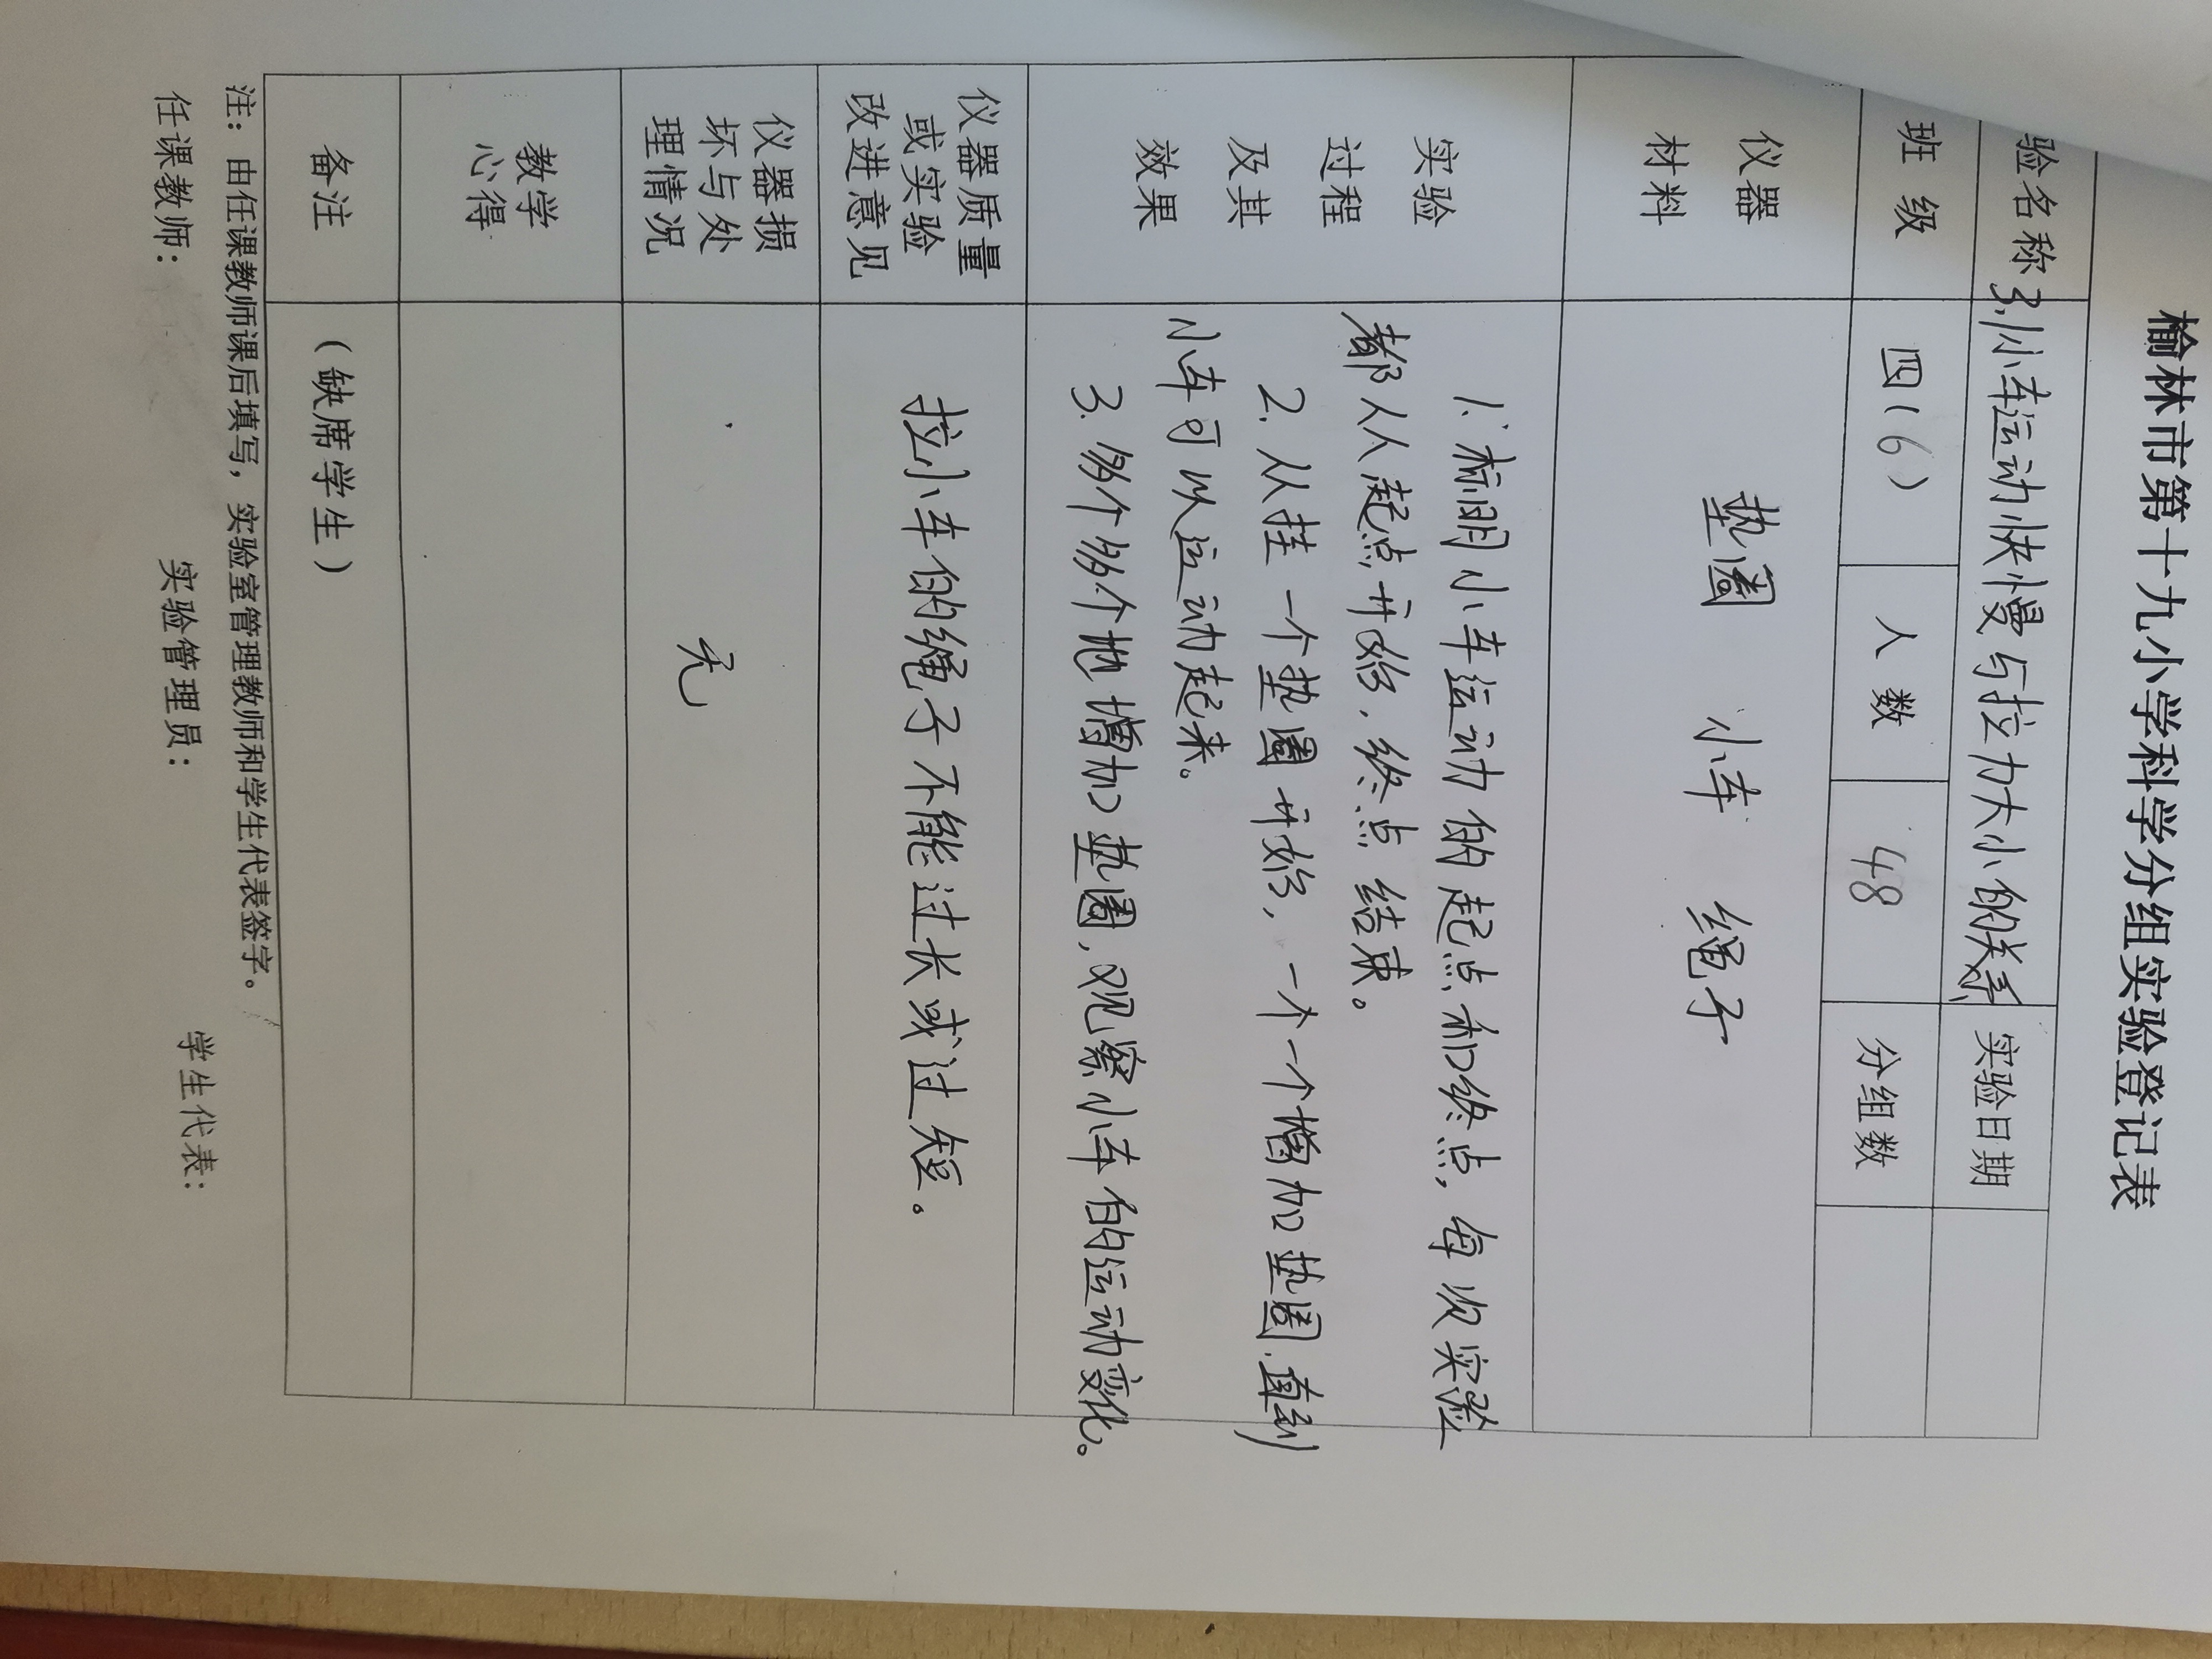 榆林市第十九小学科学分组实验登记表
验名称 3.1小车运动快慢与拉力大小的关系 实验日期
班 级 四(6) 人 数 48 分组数
仪器
材料
垫圈 小车 绳子
实验
过程
及其
效果
1. 标明小车运动的起点和终点,每次实验
都从从起点开始,终点结束。
2. 从挂一个垫圈开始,一个一个增加垫圈,直到
小车可以运动起来。
3. 多个多个地增加垫圈,观察小车的运动变化。
仪器质量
或实验
改进意见
拉小车的绳子不能过长或过短。
仪器损
坏与处
理情况
无
教学
心得
备注 (缺席学生)
注:由任课教师课后填写,实验室管理教师和学生代表签字。
任课教师: 实验管理员: 学生代表: